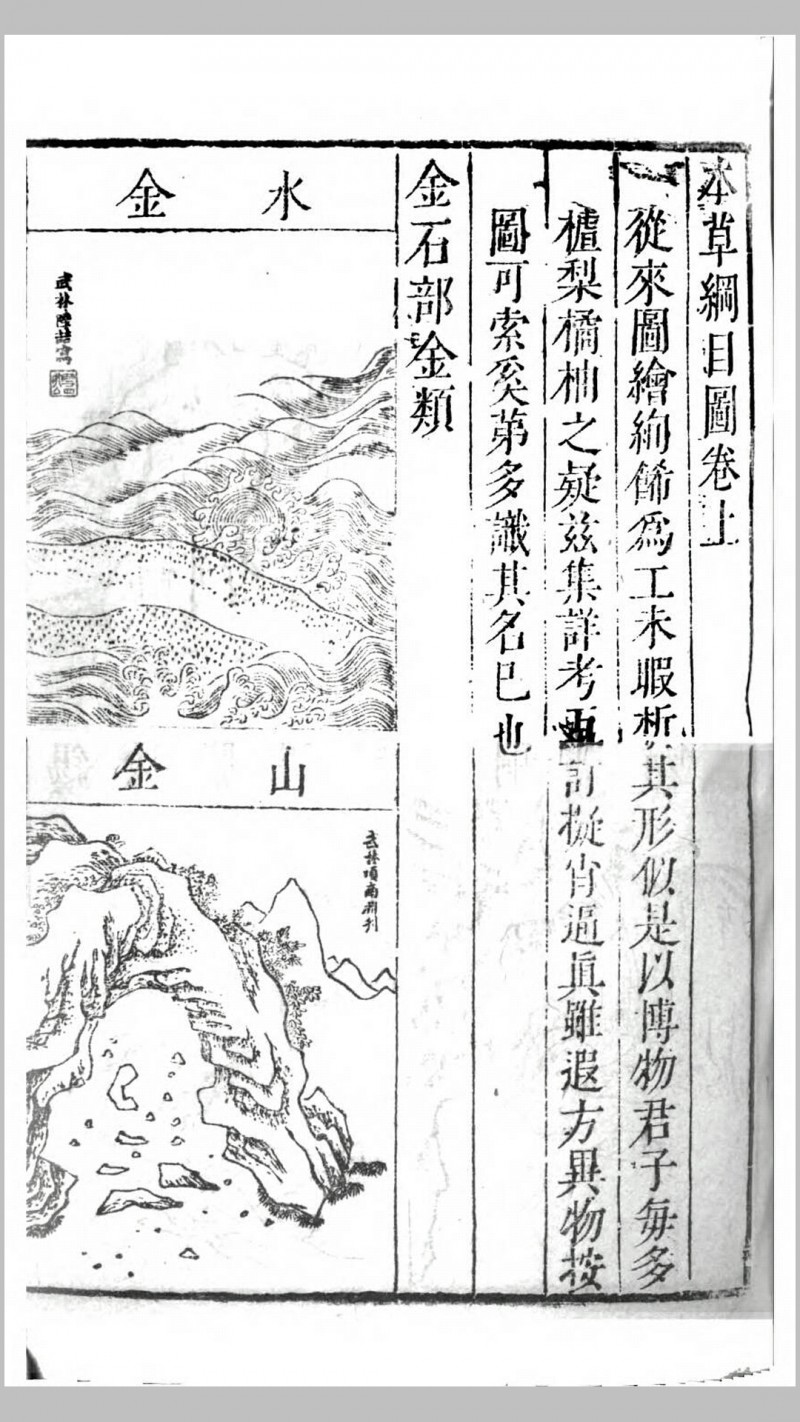 本草綱目圖卷上
從來圖繪絢餙爲工未暇析其形似是以博物君子每多
樝梨橘柚之疑兹集詳考更訂擬肖逼眞雖遐方異物按
圖可索奚第多識其名已也
金石部金類
水金
武林陸喆寫
山金
武林項南洲刋